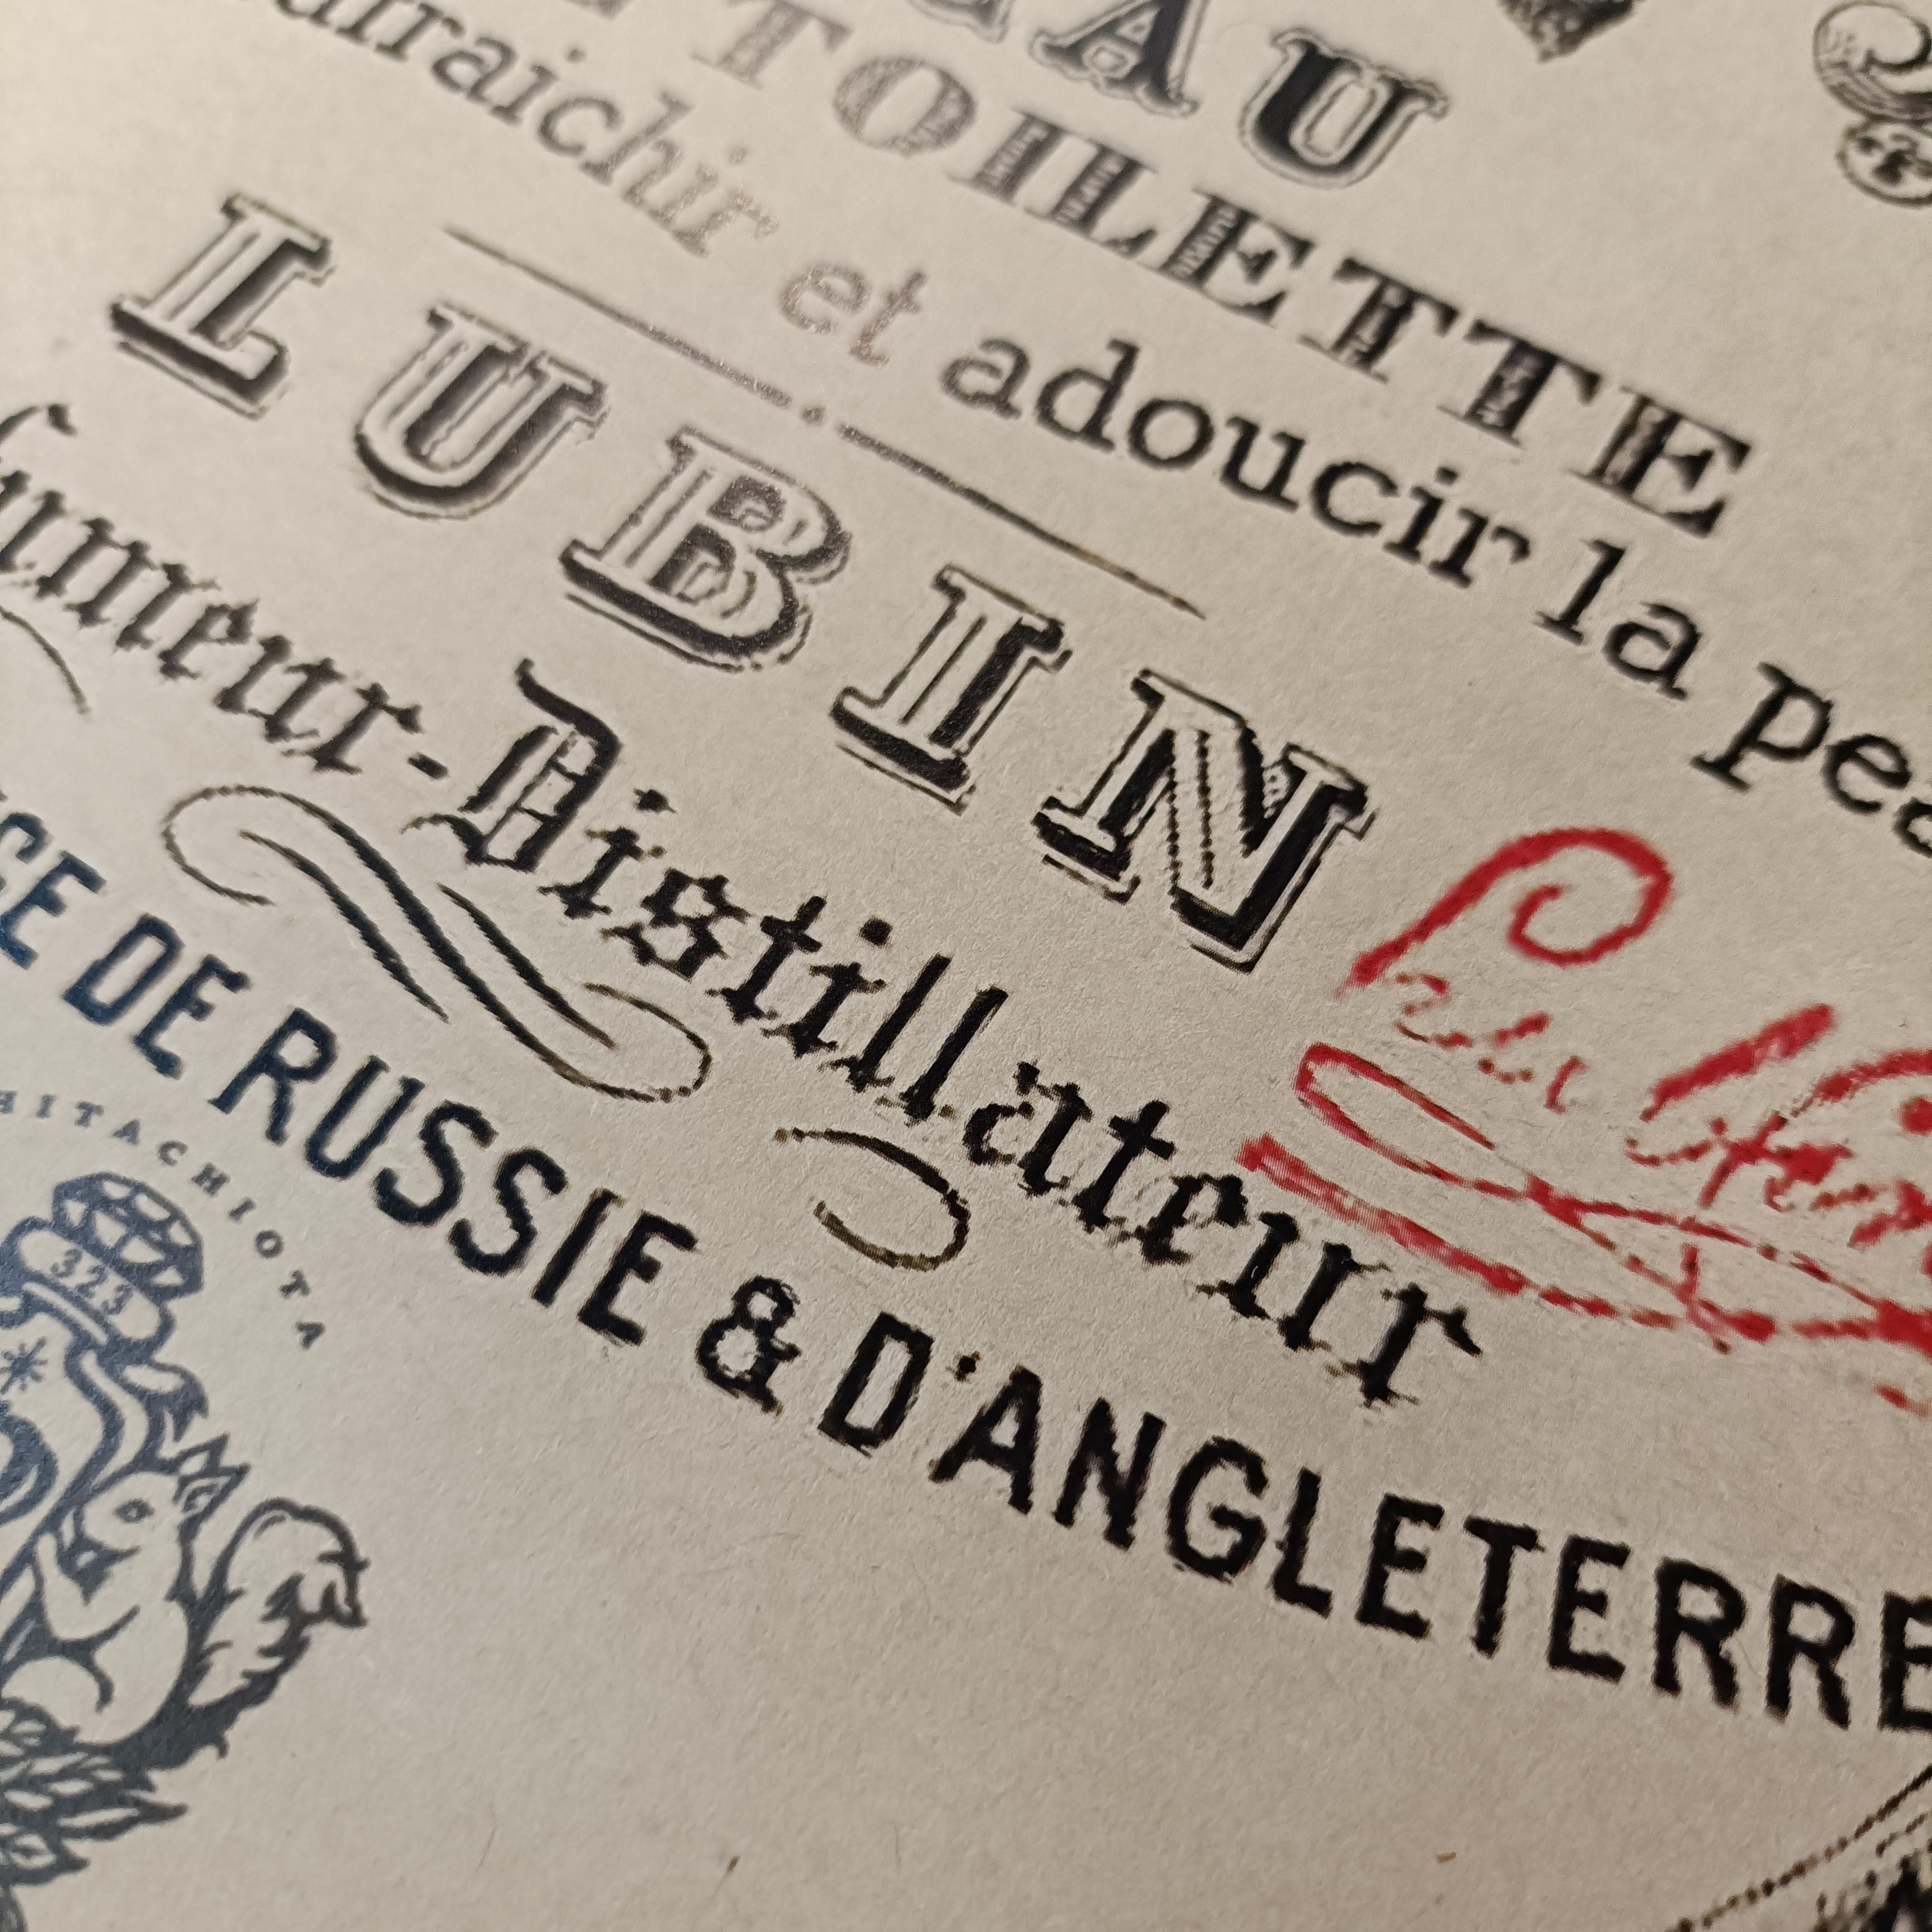 EAU
TOILETTE
et adoucir la
LUBIN
-Distillateur
DE RUSSIE & D'ANGLETERRE
HITACHIOTA
323